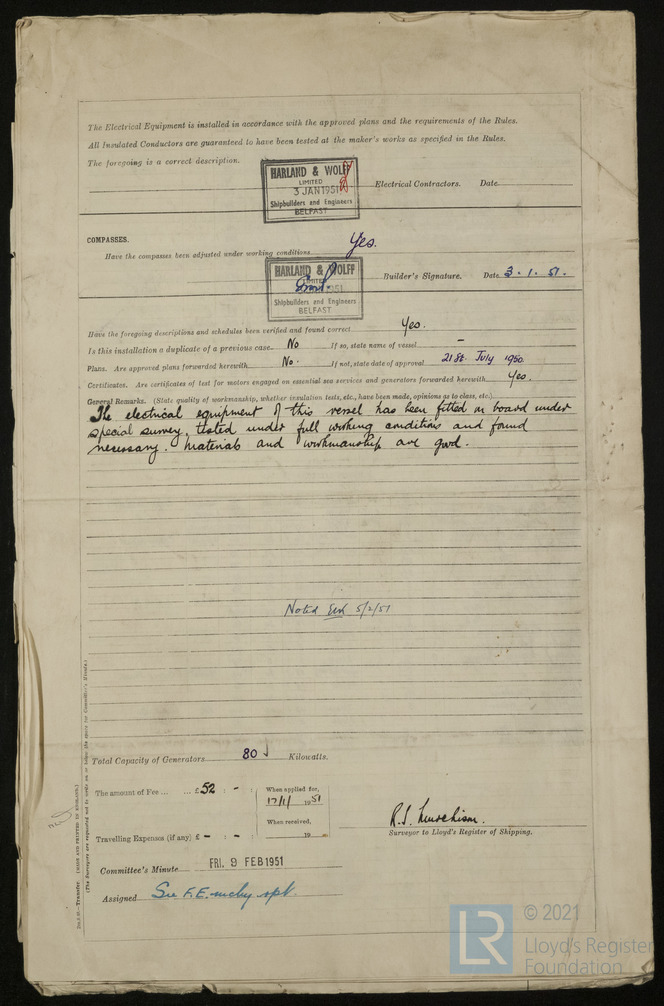 The Electrical Equipment is installed in accordance with the approved plans and the requirements of the Rules.
All Insulated Conductors are guaranteed to have been tested at the maker's works as specified in the Rules.
The foregoing is a correct description.
HARLAND & WOLFF
LIMITED
3 JAN 1951
Shipbuilders and Engineers
BELFAST
Electrical Contractors. Date
COMPASSES.
Have the compasses been adjusted under working conditions Yes.
HARLAND & WOLFF
LIMITED
1951
Shipbuilders and Engineers
BELFAST
Builder's Signature. Date 3.1.51.
Have the foregoing descriptions and schedules been verified and found correct Yes.
Is this installation a duplicate of a previous case No If so, state name of vessel –
Plans. Are approved plans forwarded herewith No. If not, state date of approval 21st July 1950.
Certificates. Are certificates of test for motors engaged on essential sea services and generators forwarded herewith Yes.
General Remarks. (State quality of workmanship, whether insulation tests, etc., have been made, opinions as to class, etc.)
The electrical equipment of this vessel has been fitted on board under
special survey, tested under full working conditions and found
necessary. Materials and workmanship are good.
Noted 5/2/51
Total Capacity of Generators 80 Kilowatts.
The amount of Fee ... ... £ 52 : - :
When applied for,
17/1/ 1951
When received,
19
Travelling Expenses (if any) £ - : - :
R.J. Murchison.
Surveyor to Lloyd's Register of Shipping.
Committee's Minute FRI. 9 FEB 1951
Assigned See F.E. mchy. rpt.
(MADE AND PRINTED IN ENGLAND.)
(The Surveyors are requested not to write on or below the space for Committee's Minute.)
© 2021
LR
Lloyd's Register
Foundation